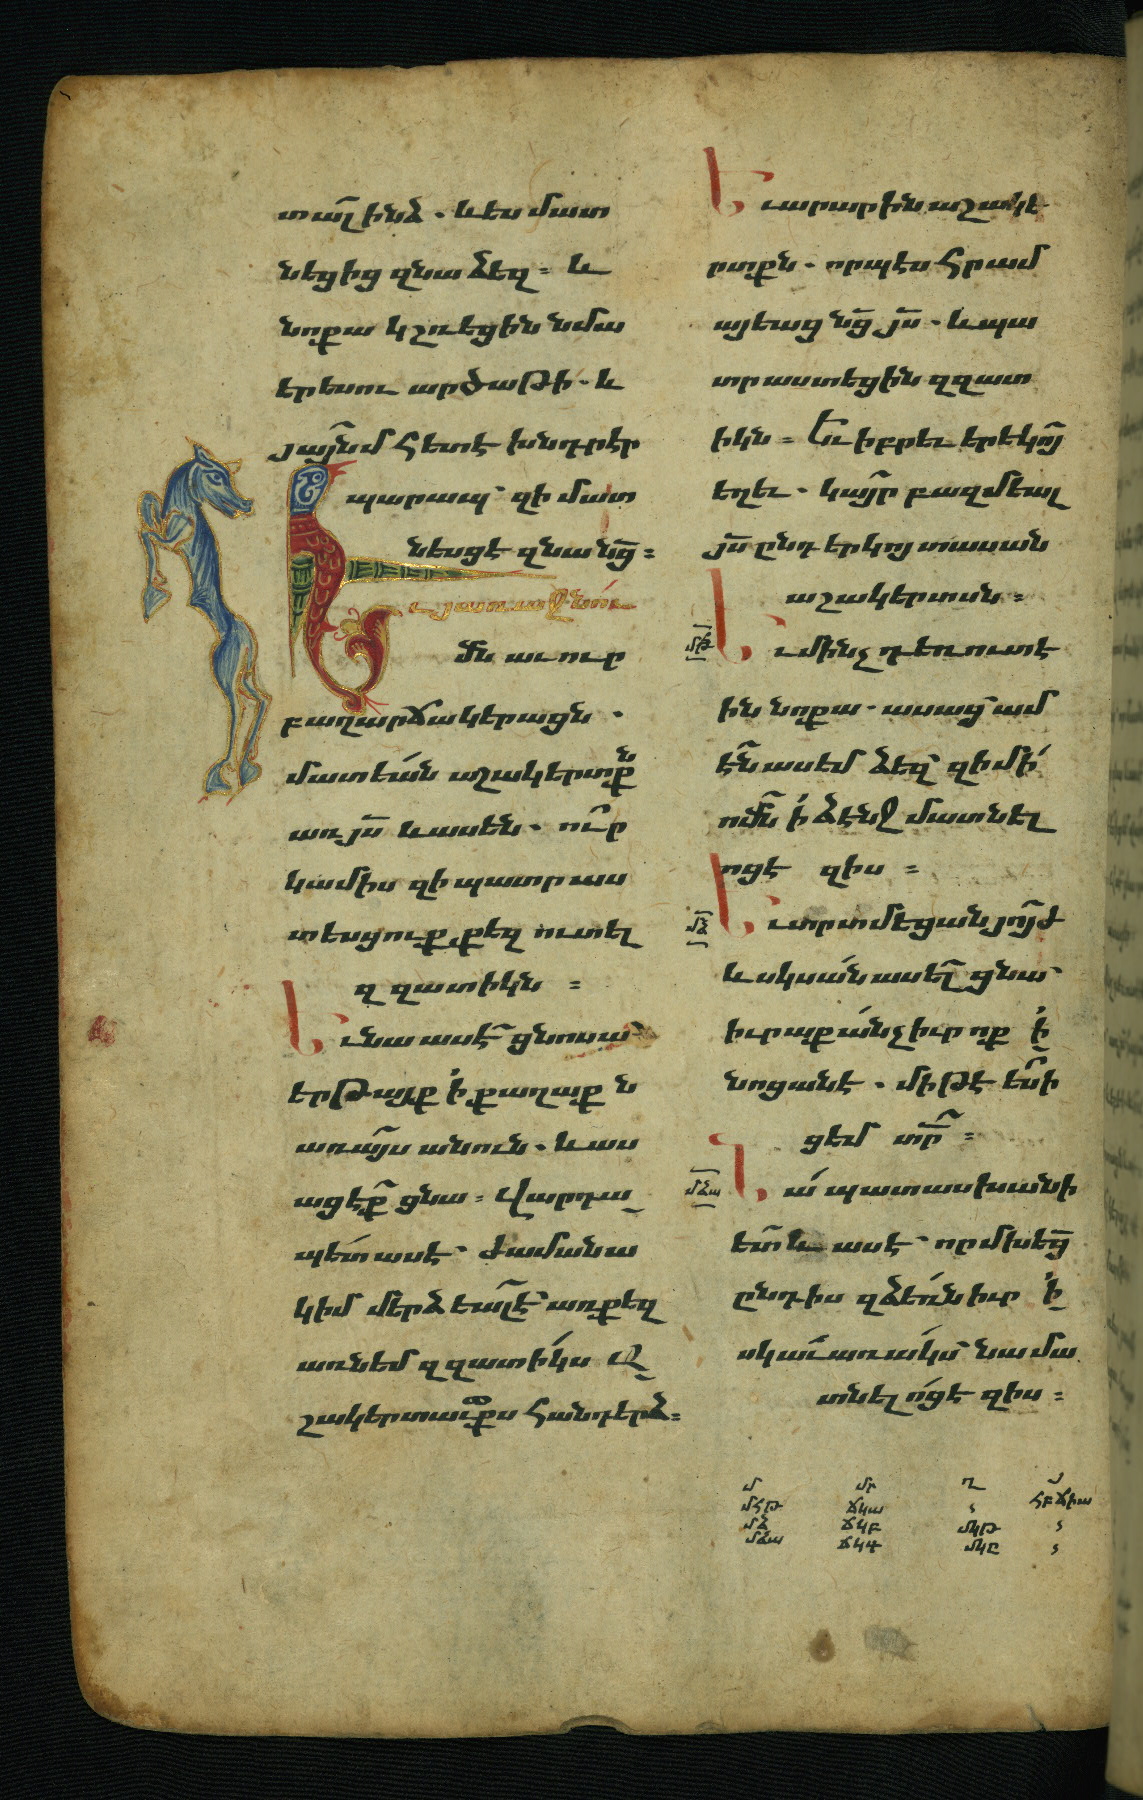 տա՟լ ինձ. և ես մատ
նեցից զնա ձեզ: և
նոքա կշռեցին նմա
երեսուն արծաթի. և
յայ՟նմ հետէ խնդրէր
պարապ՝ զի մատ
նեսցէ զնա նց՟:
Եւ յառաջնու
մն աւուր
բաղարճակերացն.
մատեան աշակերտքն
առ յս՟ և ասեն. ու՟ր
կամիս զի պատրաս
տեսցուք քեզ ուտել
զզատիկն:
Եւ նա ասէ՟ ցնոսա՝
երթայք ի քաղաքն
առ այ՟ս անուն. և աս
ացէք՟ ցնա: Վարդա
պետ ասէ՝ ժամանա
կ իմ մերձեա՟լ է՝ առ քեզ
առնեմ զզատիկս ա
շակերտաւք՟ս հանդերձ:
Եւ արարին աշակե
րտքն. որպէս հրամ
այեաց նց՟ յս՟. և պա
տրաստեցին զզատ
իկն: Եւ իբրև երեկոյ՟
եղև. կայ՟ր բազմեալ
յս՟ ընդ երկոտասան
աշակերտսն:
Եւ մինչ դեռ ուտէ
ին նոքա. ասաց՝ ամ
էն՟ ասեմ ձեզ՝ զի մի
ոմն՟ ի ձէնջ մատնել
ոցէ զիս:
Եւ տրտմեցան յոյ՟ժ
և սկսան ասել՟ ցնա՝
իւրաքանչիւր ոք ի
նոցանէ. միթէ ես՟ ի
ցեմ տր՟:
Նա պատասխանի
ետ՟ և ասէ՝ որ մխեց՟
ընդ իս զձեռն իւր ի
սկաւառակս՝ նա մա
տնելոց է զիս:
մհթ
մձ
մձա
մ մր ղ
մհթ ճկա
մձ ճկբ մկթ
մձա ճկդ մկը